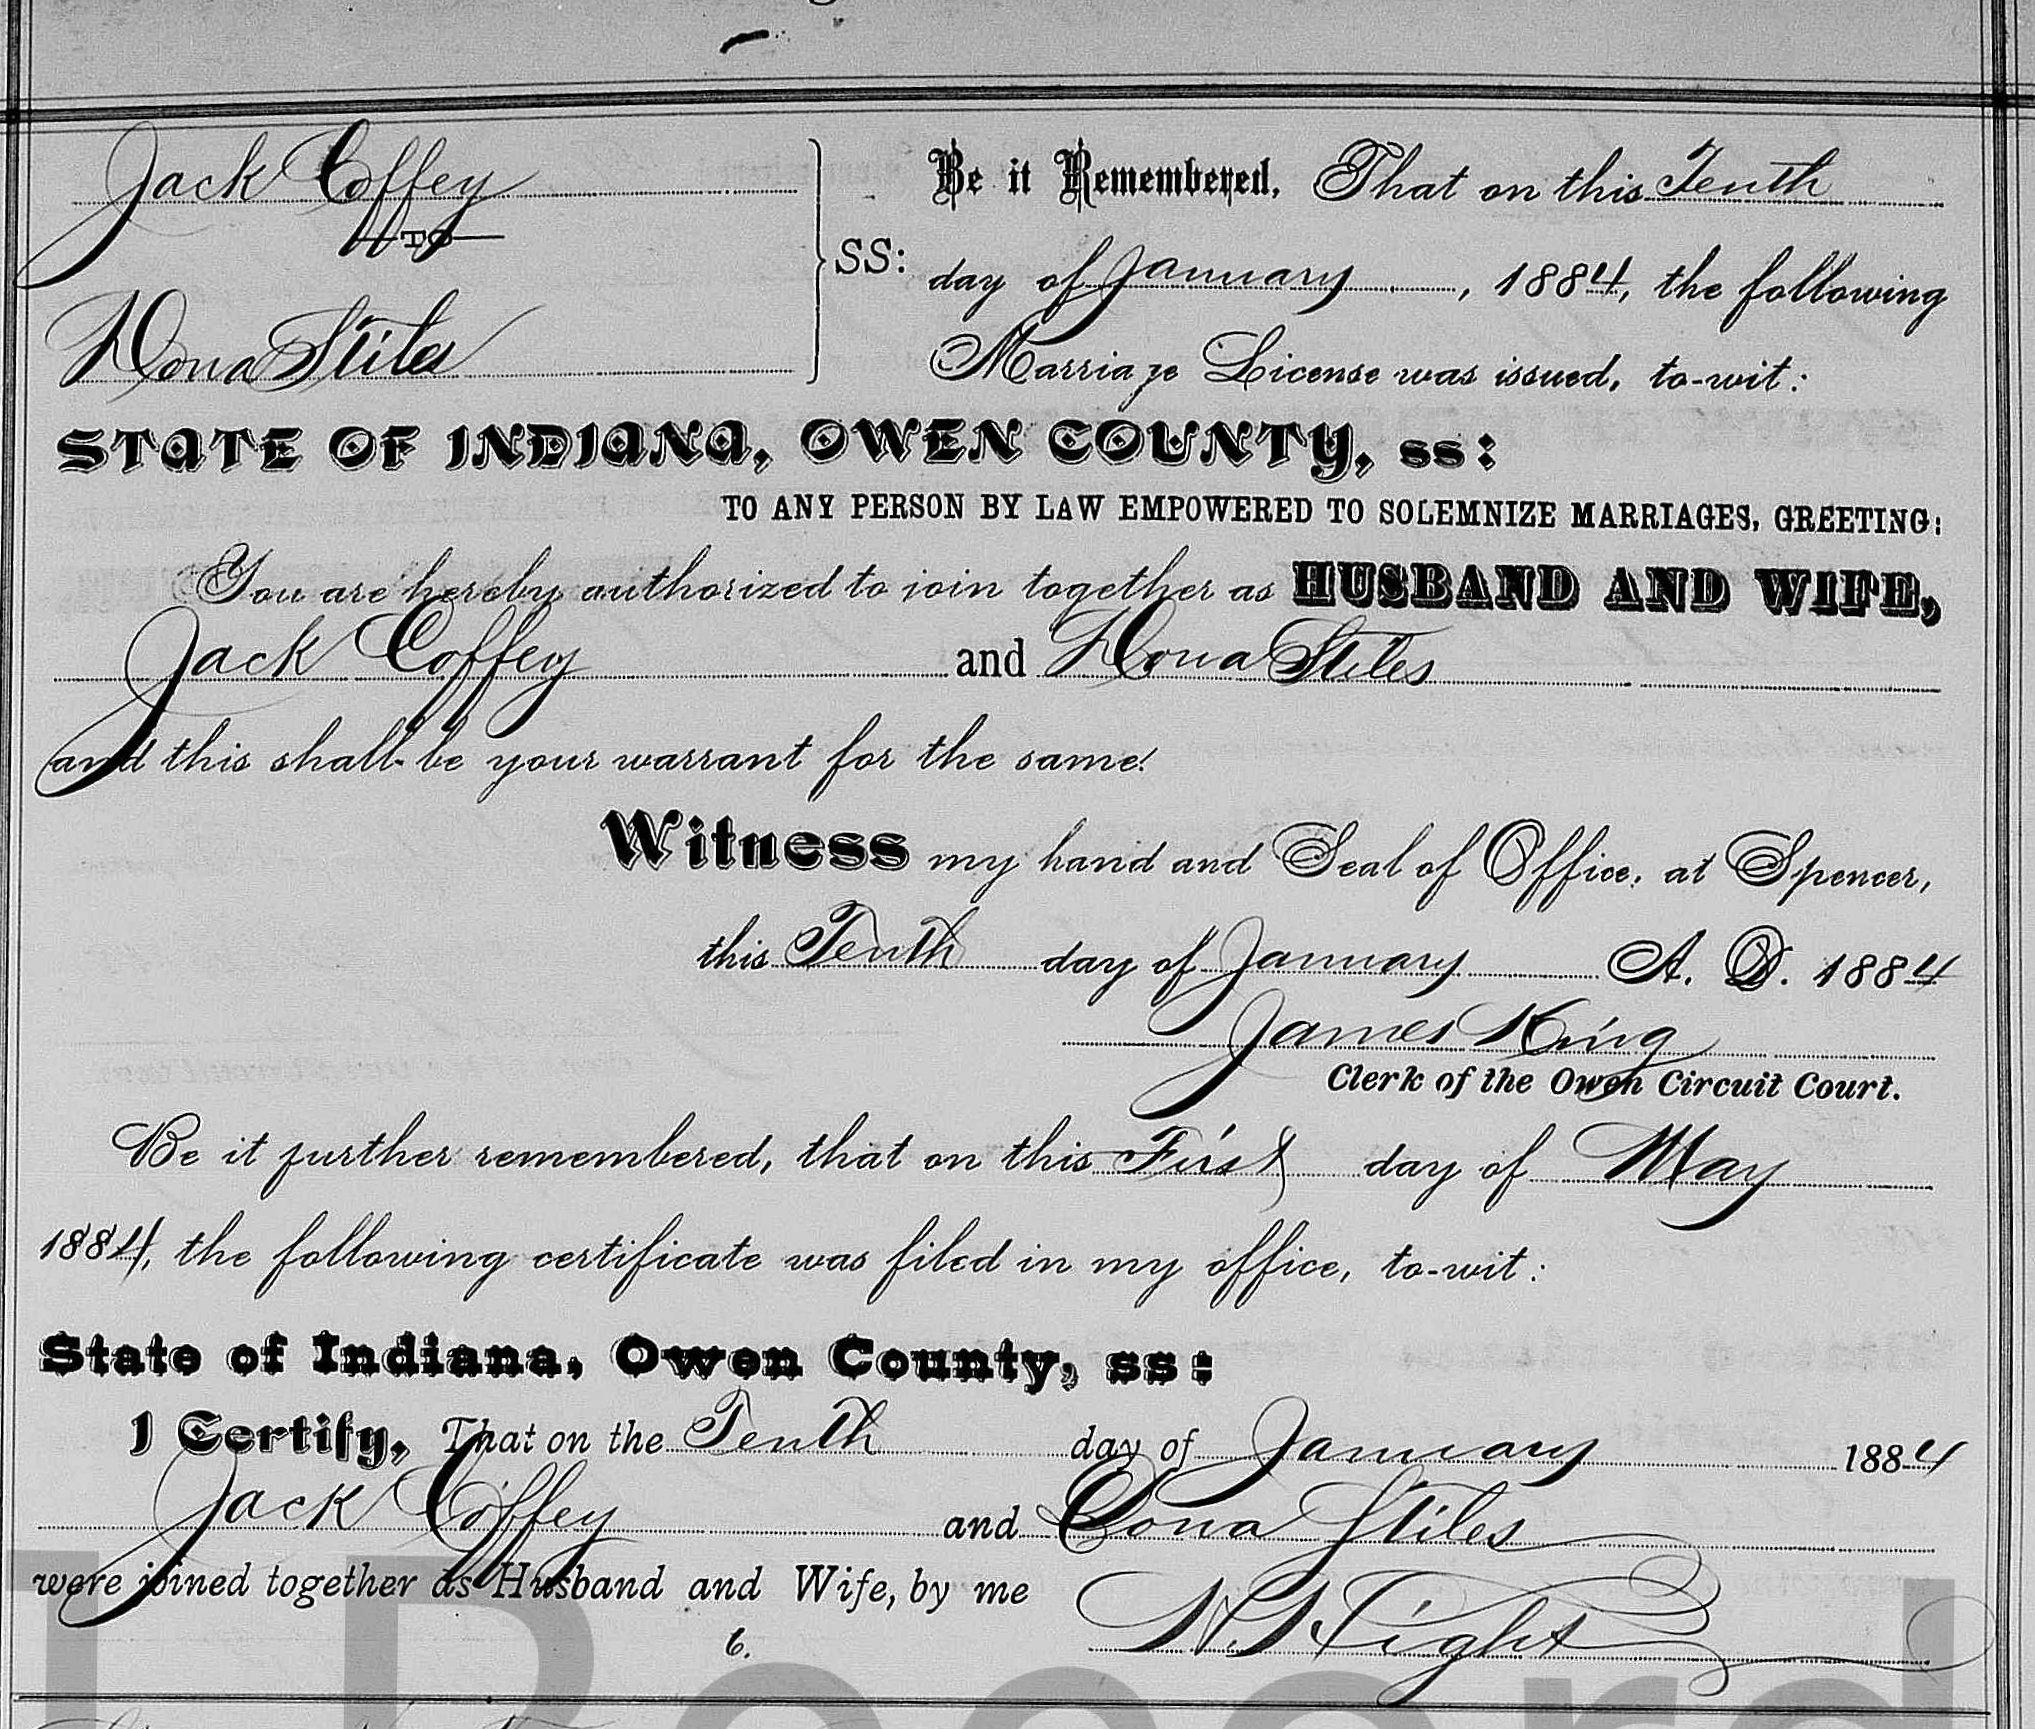 Jack Coffey
TO
Dona Stiles
SS:
Be it Remembered, That on this Tenth
day of January, 1884, the following
Marriage License was issued, to-wit:
STATE OF INDIANA, OWEN COUNTY, ss:
TO ANY PERSON BY LAW EMPOWERED TO SOLEMNIZE MARRIAGES, GREETING:
You are hereby authorized to join together as HUSBAND AND WIFE,
Jack Coffey and Dona Stiles
and this shall be your warrant for the same.
Witness my hand and Seal of Office, at Spencer,
this Tenth day of January A. D. 1884
James King
Clerk of the Owen Circuit Court.
Be it further remembered, that on this First day of May
1884, the following certificate was filed in my office, to-wit:
State of Indiana, Owen County, ss:
I Certify, That on the Tenth day of January 1884
Jack Coffey and Dona Stiles
were joined together as Husband and Wife, by me
6.